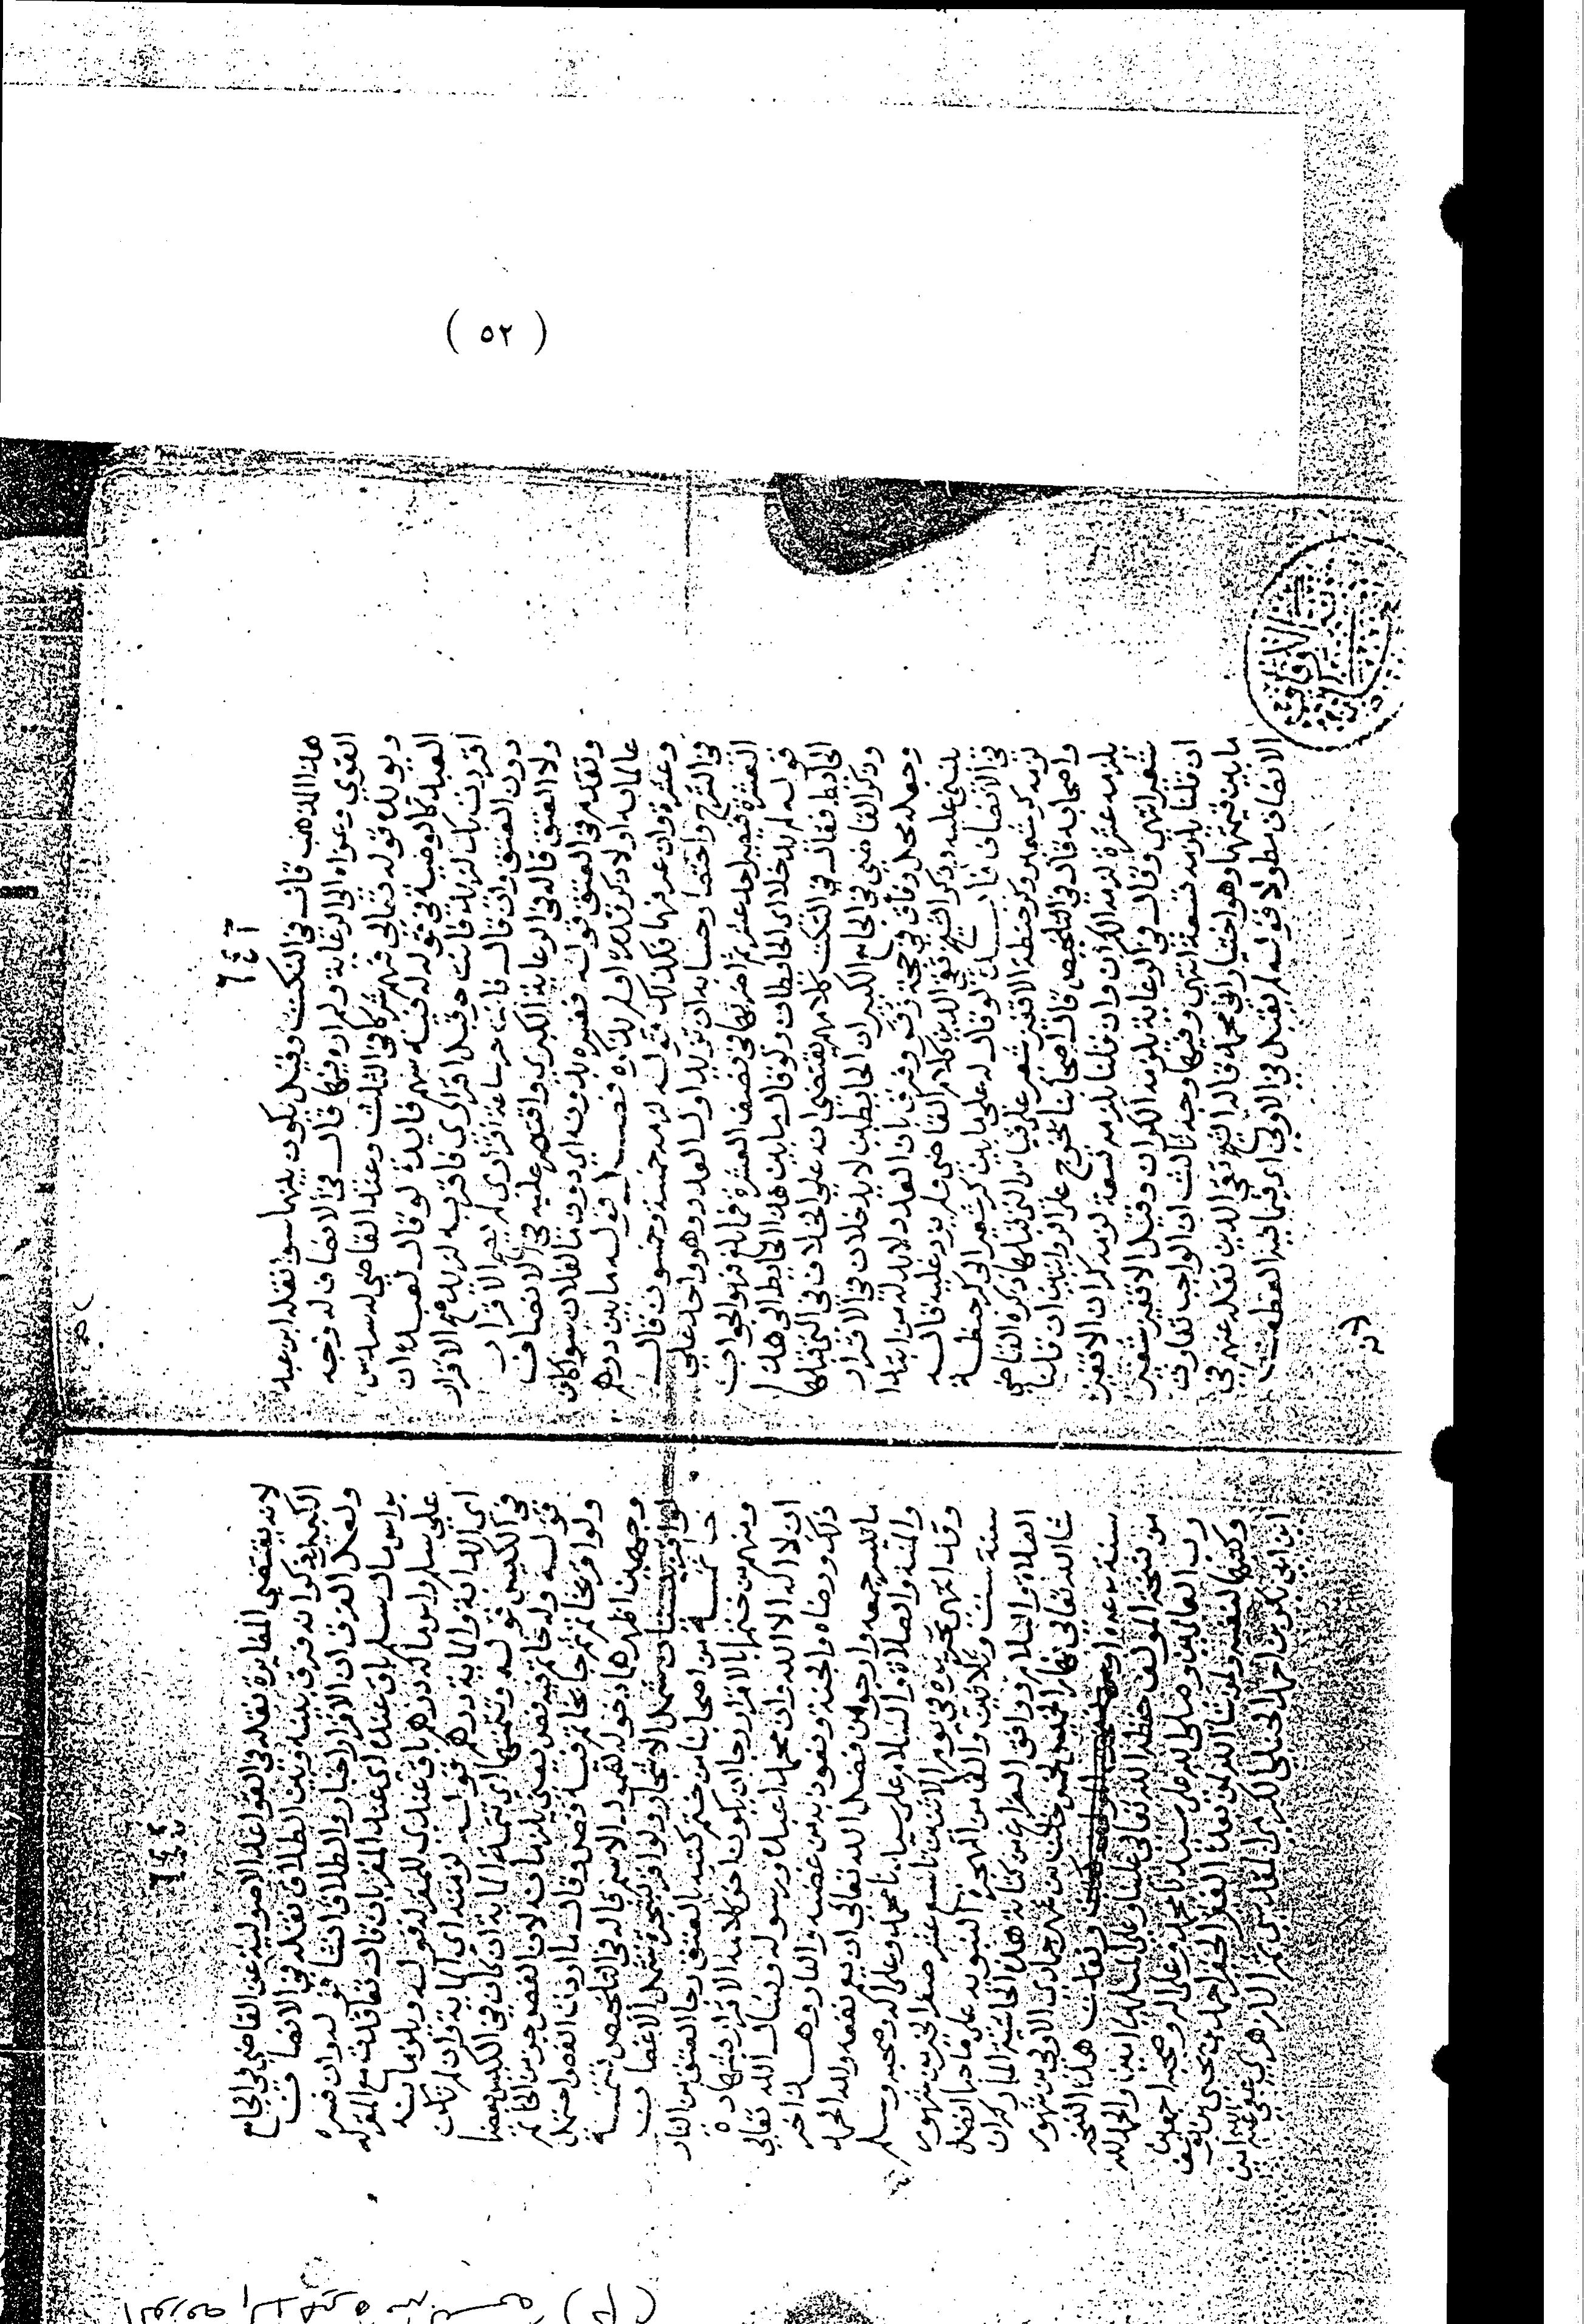 ( ٥٢ )
٢٤٦
هذا المذهب قال في النكت وقيل يكون بينهما سوا نقله ابن عبد
القوي وعزاه الى الرعاية ولم اره فيها قال في الانصاف له وجه
ويؤيده قوله تعالى فهم شركا في الثلث وعند القاضي له سدس
العبد كالوصية في قوله له فيه سهم فايدة لو قال لعبده ان
اقررت بك لزيد فانت حر قبل اقراري فاقر به لزيد صح الاقرار
دون العتق وان قال فانت حر ساعة اقراري لم يصح الاقرار
ولا العتق قاله في الرعاية الكبرى واقتصر عليه في الانصاف
وتقدم في العتق قوله ففسره بدونه اي دون مال فلان سوا كان
عالما به اولا ذكر قدره او لم يذكره فصل قوله ما بين درهم
وعشرة وان عرفهما فكذلك قوله لزمه خمسة وخمسون قال
في الشرح واختصار حسابه ان تزيد اول العدد وهو واحد على
العشرة فيصير احد عشر ثم اضربها في نصف العشرة فما بلغ فهو الجواب
قوله لم يدخلا اي الحايطان ولو قال ما بين هذا الحايط الى هذا
الحايط فقال في النكت كلامهم يقتضي انه على الخلاف في التي قبلها
وذكر القاضي في الجامع الكبير ان الحايطين لا يدخلان في الاقرار
وجعله محل وفاق في حجة زفر وفرق بان العدد لابد له من ابتدا
ينبني عليه وذكر الشيخ تقي الدين كلام القاضي ولم يزد عليه قاله
في الانصاف فايدة لو قال له علي ما بين كر شعير الى كر حنطة
لزمه كر شعير وكر حنطة الا قفيز شعير على قياس التي قبلها ذكره القاضي
واصحابه قال في التلخيص قال اصحابنا يخرج على الروايتين ان قلنا
يلزمه عشرة لزمه الكران وان قلنا يلزمه تسعة لزمه كران الا قفيز
شعير انتهى وقال في الرعاية يلزمه الكران وقيل الا قفيز شعير
ان قلنا يلزمه تسعة انتهى وفيها وجه ثالث ان الواجب تفاوت
ما بين قيمتها وهو اختيار ابي محمد قاله الشيخ تقي الدين نقله عنهم في
الانصاف مطولا قوله لم يقبل في الاولى اي فيما فيه العطف
لانه
لانه يقتضي المغايرة نقله في القواعد الاصولية عن القاضي في الجامع
الكبير وذكر انه فرق بينه وبين الطلاق نقله في الانصاف
ولعل الفرق ان الاقرار اخبار والطلاق انشا قوله وان فسره
براس مال سلم باق عنده اي عند المقر بان قال تعاقدت مع المقر له
على سلم وراس ماله درهم باق عندي للمقر له قوله ويلزمانه
اي الدابة والماية درهم قوله لزمته اي الماية وان لم تكن
في الكيس قوله وتتمتها اي تتمة الماية ان كان في الكيس بعضها
قوله وله خاتم فيه فص يعني يلزمانه لان الفص جزء من الخاتم
ولو اقر بخاتم ثم جا بخاتم فيه فص وقال ما اردت الفص احتمل
وجهين اظهرهما دخوله لشمول الاسم قاله في التلخيص تتمة
لو اقر ببستان شمل الاشجار ولو اقر بشجرة شمل الاغصان
خاتمة من اصحابنا من ختم كتبه بالعتق رجا العتق من النار
ومنهم من ختمها بالاقرار رجا ان يكون اخر كلامه الاقرار بشهادة
ان لا اله الا الله وان محمدا عبده ورسوله ونسال الله تعالى
ذلك ورضاه والجنة ونعوذ به من غضبه والنار وهذا اخر
ما تيسر جمعه وارجو من فضل الله تعالى ان يعم نفعه ولله الحمد
والمنة والصلاة والسلام على سيدنا محمد وعلى اله وصحبه وسلم
وقد انتهى تحريره في يوم الاثنين تاسع عشر صفر الخير من شهور
سنة ست وثلاثين والف من الهجرة النبوية على صاحبها افضل
الصلاة والسلام ووافق الفراغ من كتابة هذه الحاشية المباركة ان
شا الله تعالى نهار الخميس لخمس خلت من شهر جمادى الاولى من شهور
سنة ونقلت هذه النسخة
من نسخة المؤلف حفظه الله تعالى علينا وعلى المسلمين امين والحمد لله
رب العالمين وصلى الله على سيدنا محمد وعلى اله وصحبه اجمعين
وكتبها لنفسه ولمن شا الله من بعده الفقير الحقير احمد بن يحيى بن يوسف
ابن ابي بكر بن احمد الحنبلي الكرمي المقدسي ثم الازهري عفي عنه امين